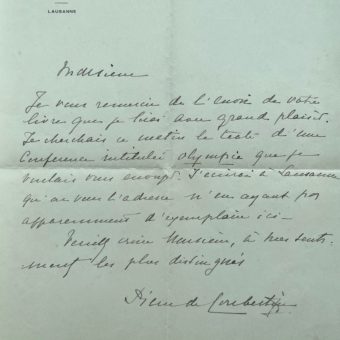 LAUSANNE
Monsieur
Je vous remercie de l'envoi de votre
livre que je lirai avec grand plaisir.
Je cherchais ce matin le texte d'une
Conférence intitulée Olympie que je
voulais vous envoyer. J'écrirai à Lausanne
qu'on vous l'adresse n'en ayant pas
apparemment d'exemplaire ici —
Veuillez croire Monsieur, à mes senti-
ments les plus distingués
Pierre de Coubertin